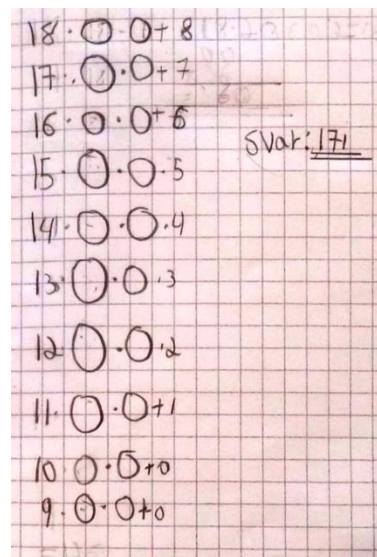 18 · O · O + 8
17 · O · O + 7
16 · O · O + 6
Svar: 171
15 · O · O · 5
14 · O · O · 4
13 · O · O · 3
12 O · O · 2
11 · O · O + 1
10 · O · O + 0
9 · O · O + 0